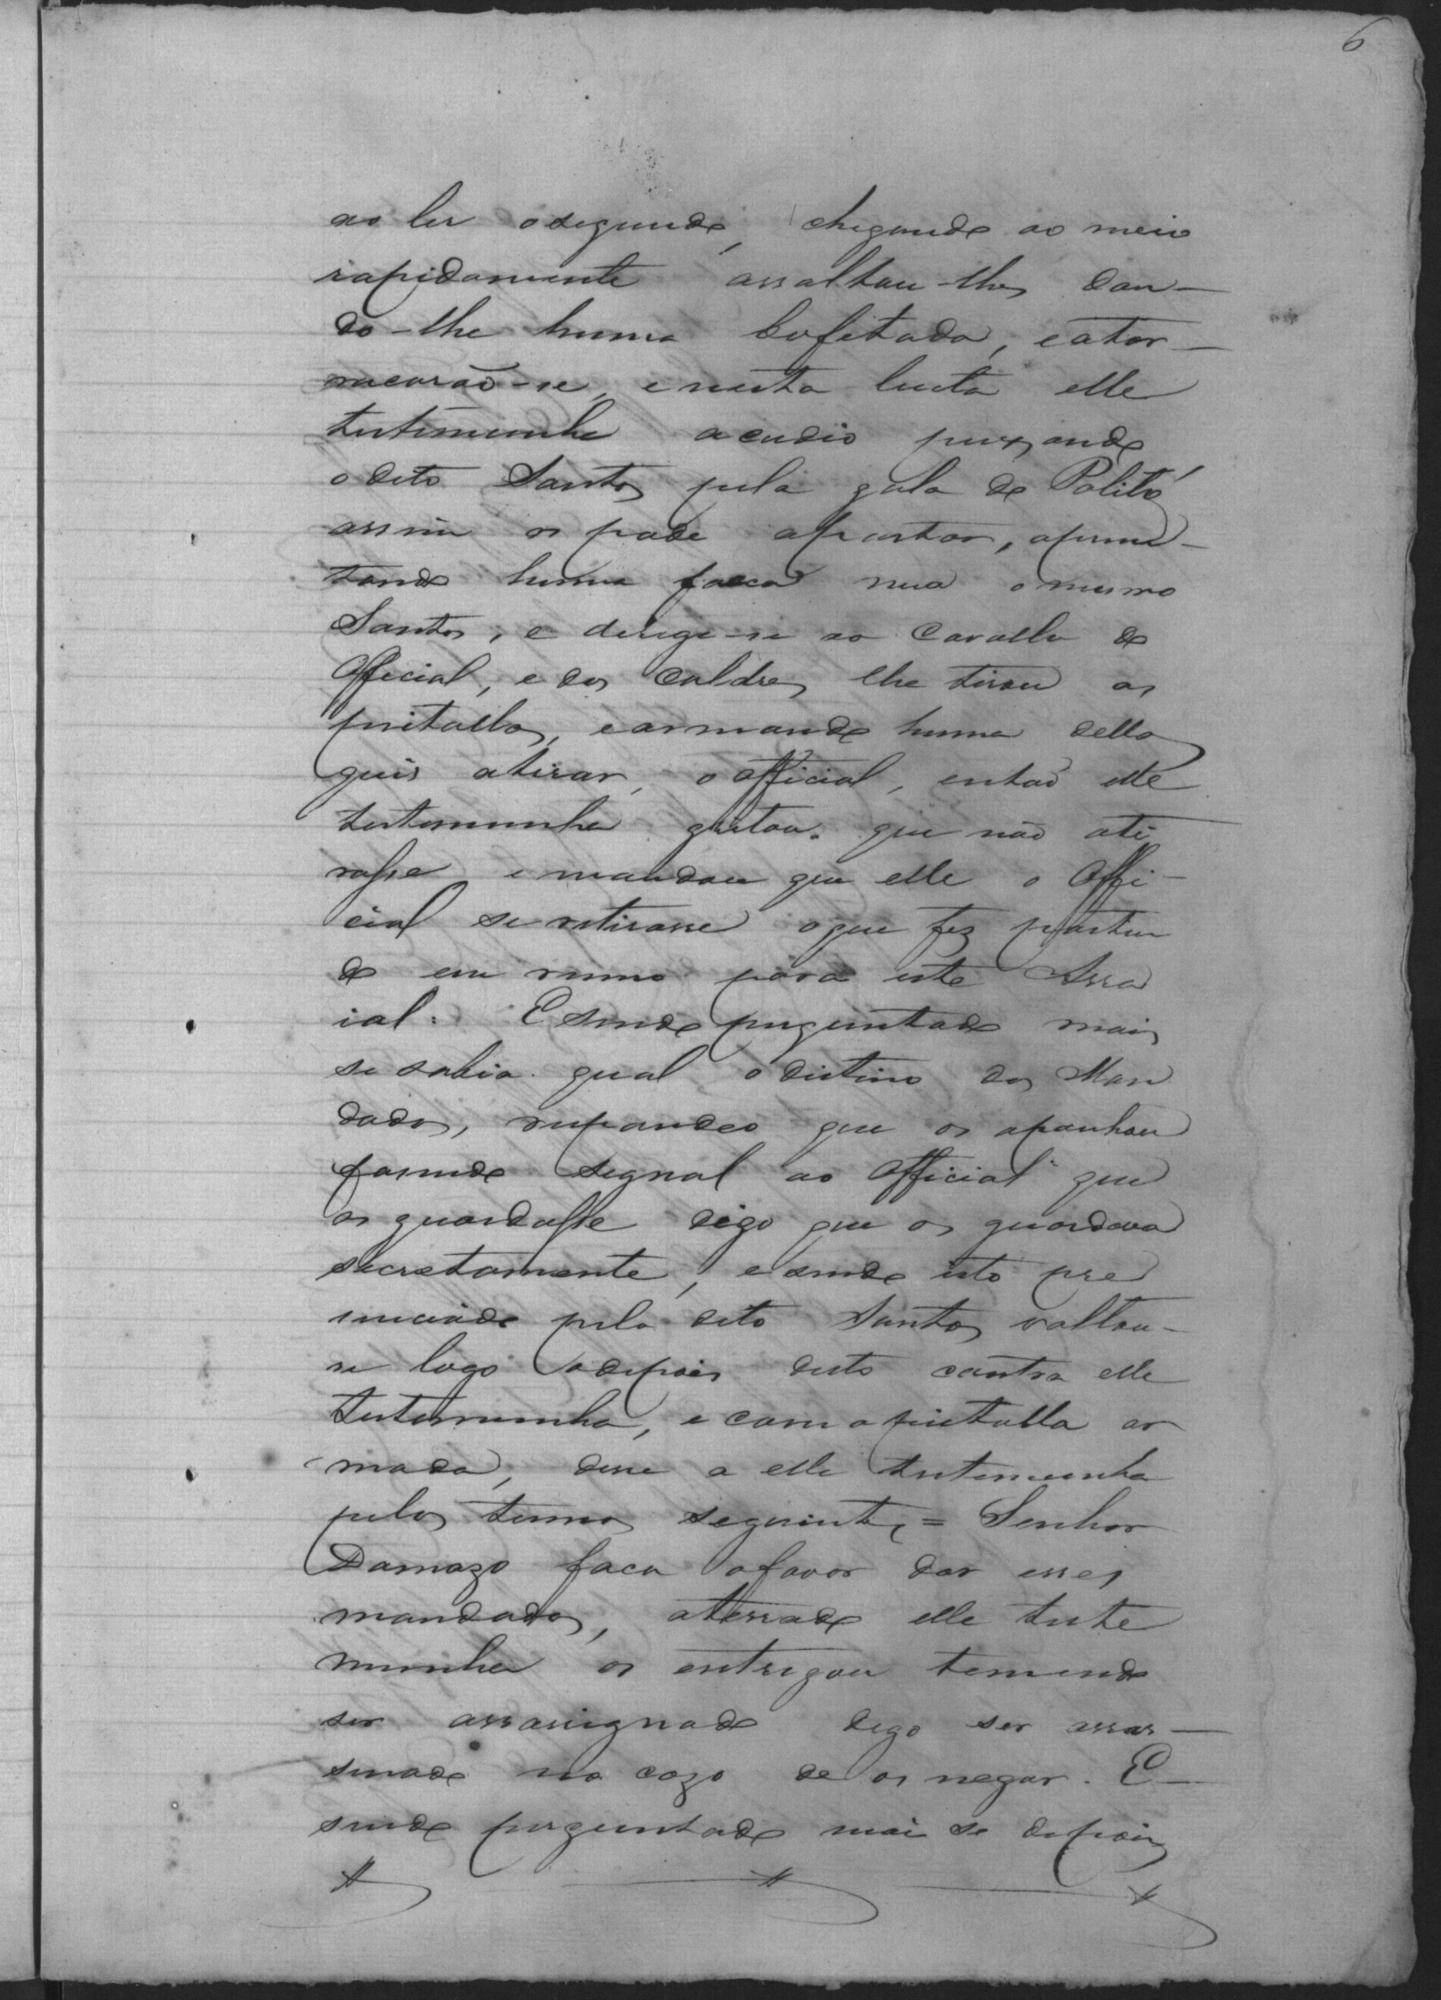 6
ao ler o segundo, chegando ao meio
rapidamente assaltou-lhes dan-
do-lhe huma bofetada, e ator-
racarão-se, e nesta lucta elle
testemunha acudio puxando
o dito Santos pela gola do Palitó
assim os pode apartar, apresen-
tando huma faca nua o mesmo
Santos, e derige-se ao Cavallo do
Official, e dos Coldres lhe tirou as
pistollas, e armando huma dellas
quis atirar, o Official, então elle
testemunha gritou que não ati
rasse e mandou que elle o Offi-
cial se retirasse o que fez partin
do em rumo para este Arra
ial. E sendo perguntado mais
se sabia qual o distino dos Man
dados, respondeo que os apanhou
fasendo segnal ao Official que
os guardasse digo que os guardava
secretamente, e sendo isto pre
senciado pelo dito Santos voltou-
se logo adepois disto contra elle
testemunha, e com a pistolla ar
mada, disse a elle testemunha
pelos termos seguintes = Senhor
Damazo faca o favor dar esses
mandados, aterrado elle teste
munha os entregou temendo
ser assassignado digo ser assas-
sinado no cazo de os negar. E-
sendo perguntado mais se depois